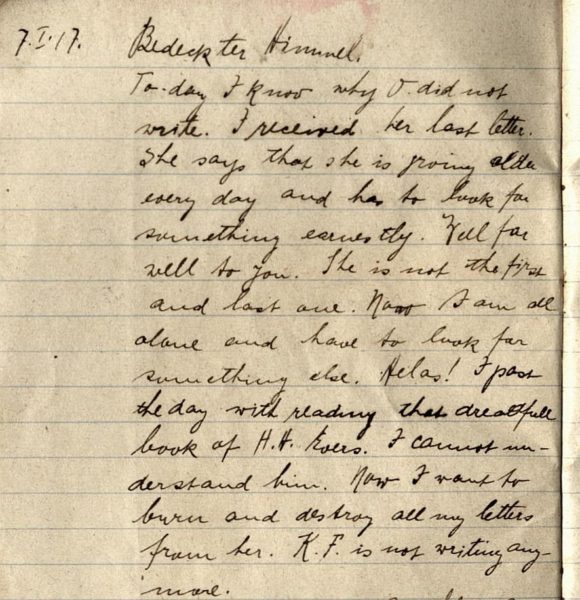 7.I.17. Bedeckter Himmel.
To-day I know why O. did not
write. I received her last letter.
She says that she is growing older
every day and has to look for
something earnestly. Well far
well to you. She is not the first
and last one. Now I am all
alone and have to look for
something else. Helas! I past
the day with reading that dreadfull
book of H.H. Ewers. I cannot un-
derstand him. Now I want to
burn and destroy all my letters
from her. K.F. is not writing any-
more.